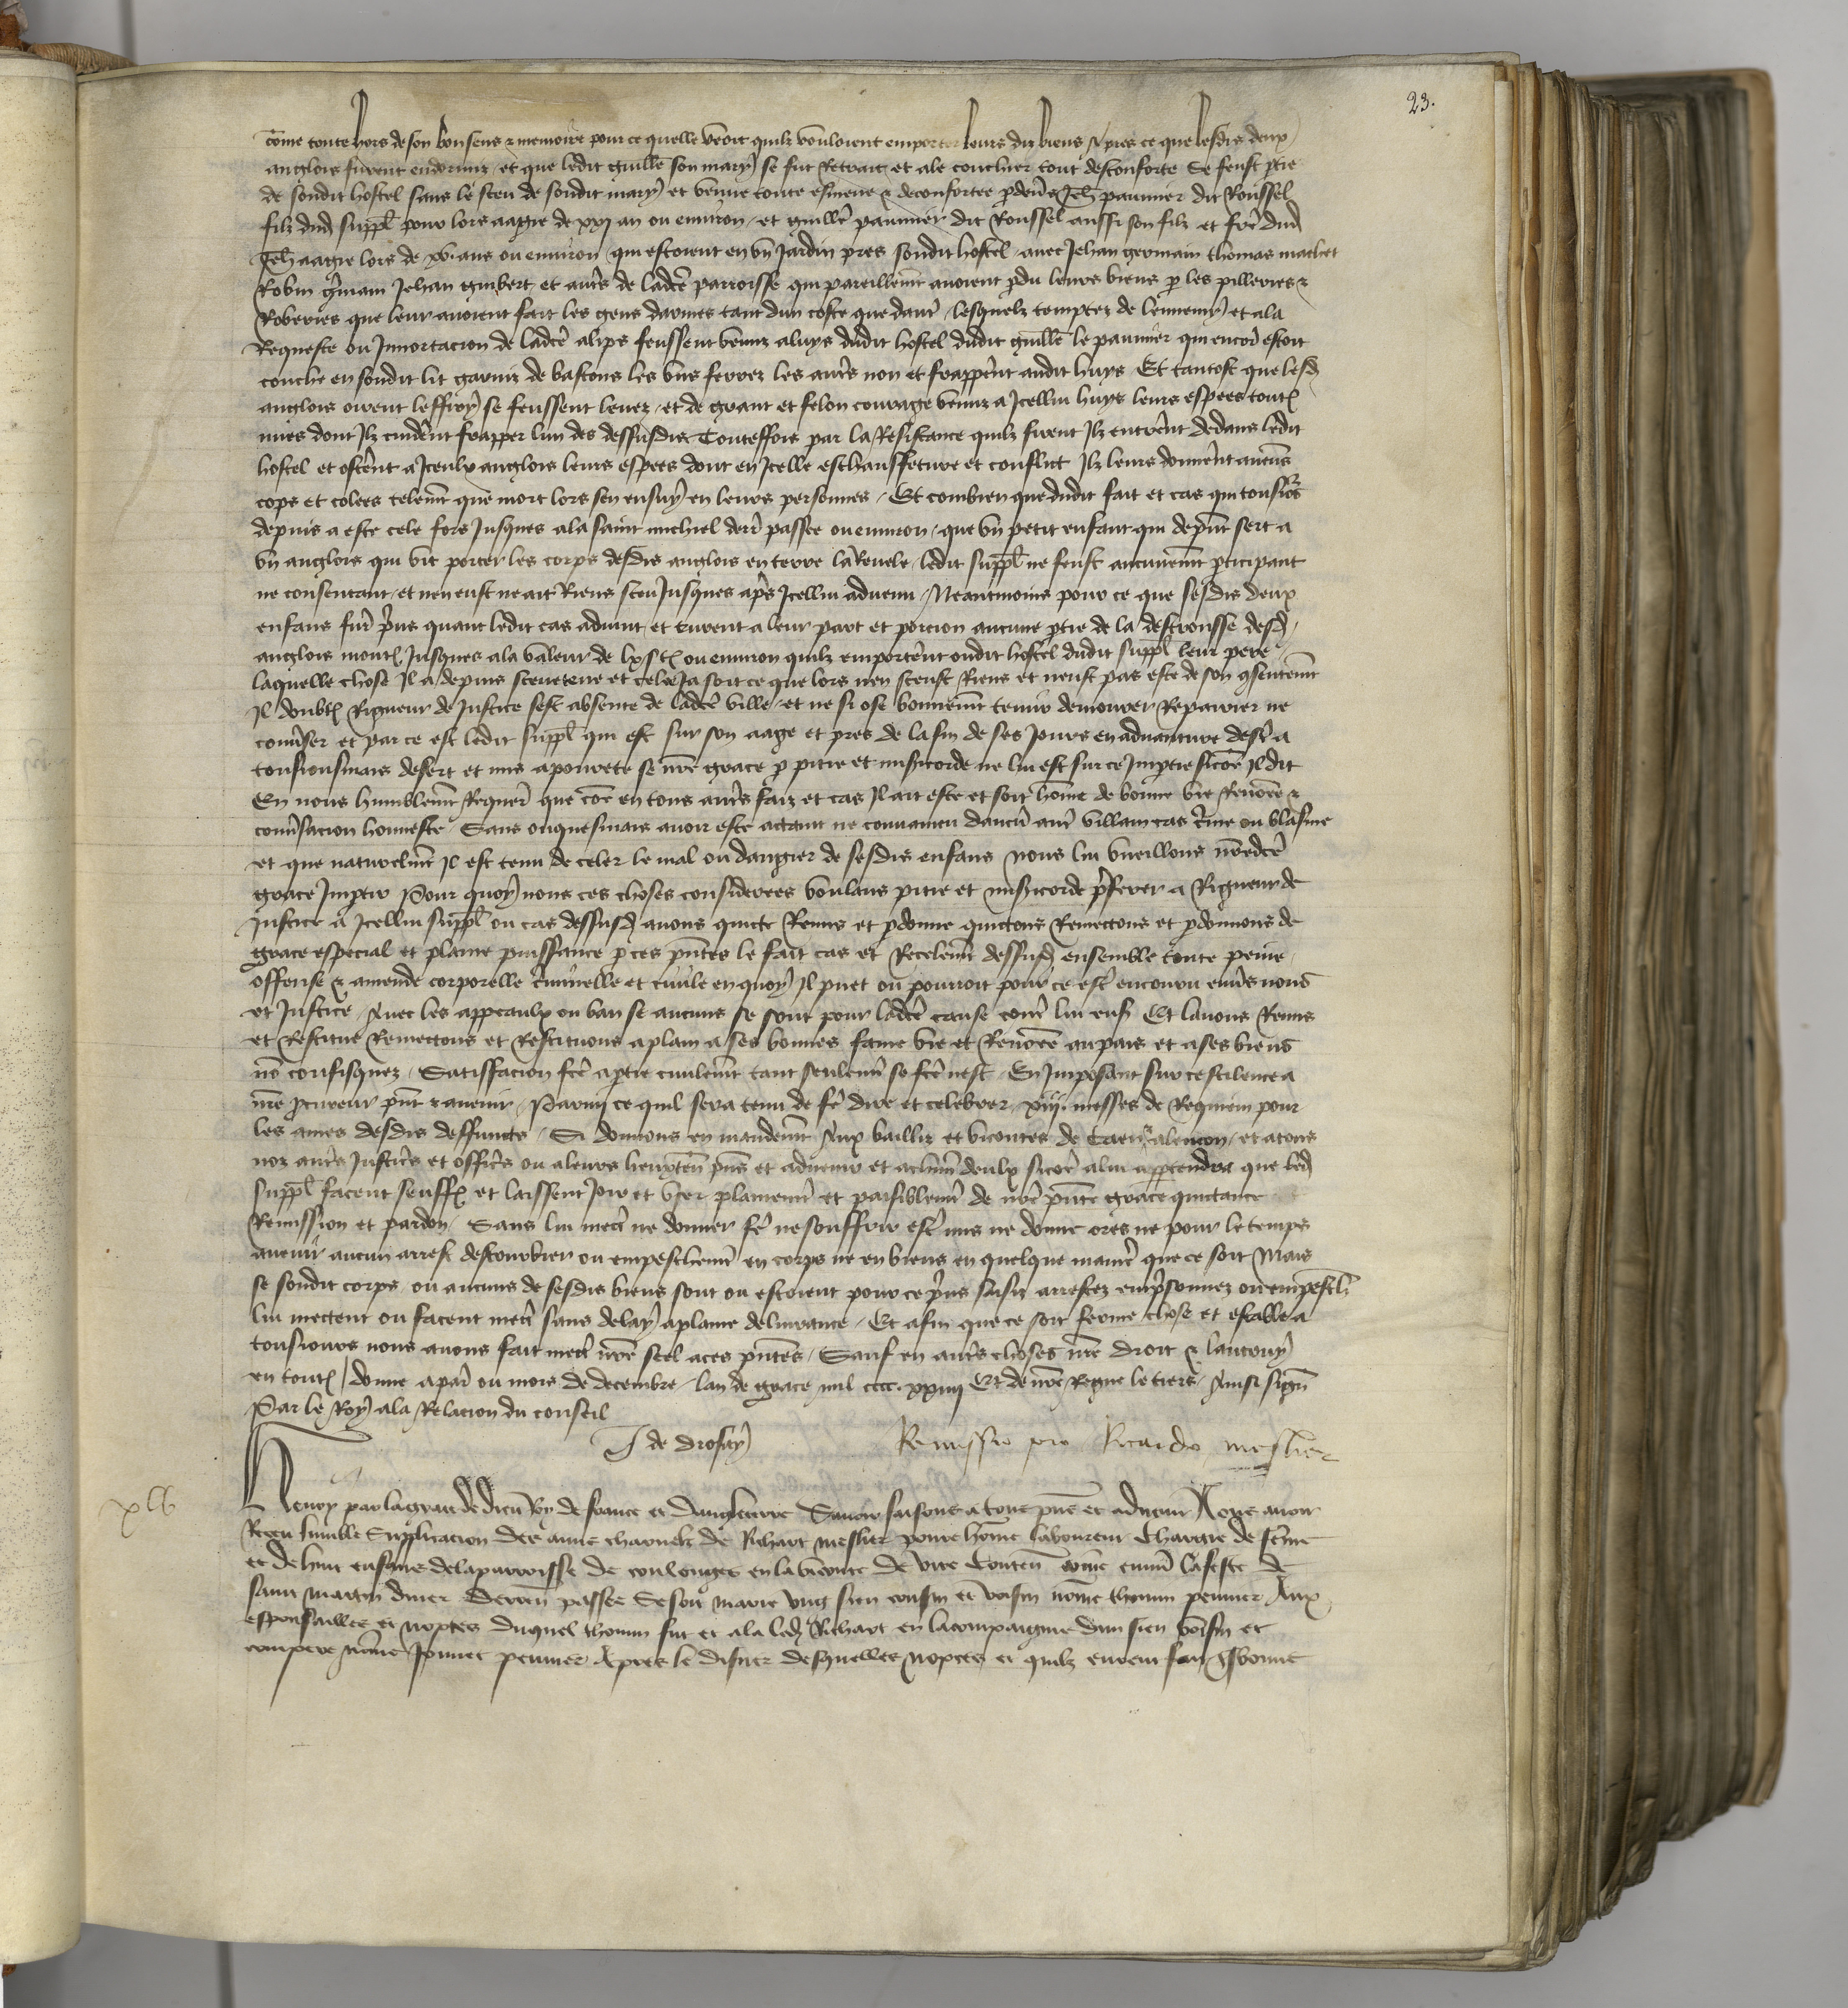 23.
come toute hors de son bon sens & memoire pour ce quelle veoit quilz vouloient emporter leurs diz biens Apres ce que lesdis deux
anglois furent endormiz et que ledit guille son mary se fut Retrait et ale couchier tout desconforte Se feust ptie
de sondit hostel sans le sceu de sondit mary et venue toute esmeue & deconfortee p deus Jeh paumier dit Roussel
filz dud suppl pour lors aagie de xxj an ou environ et guille paumier dit Roussel aussi son filz et fre dud
Jeh aagie lors de xv ans ou environ qui estoient en un Jardin pres sondit hostel avec Jehan germain thomas machet
Robin gmain Jehan guibert et autres de ladce parroisse qui pareillemt avoient pdu leurs biens p les pilleries &
Roberies que leur avoient fait les gens darmes tant dun coste que dautre lesquelz temptez de lennemy et ala
Requeste ou Jnnortacion de ladce alips feussent venuz a luys dudit hostel dudit guille le paumier qui encore estoit
couche en sondit lit garniz de bastons les uns ferrez les autres non et frapperent audit huys Et tantost que lesd
anglois oirent leffroy se feussent levez et de grant et felon courage venuz a Jcellui huys leurs espees tout
nues dont Jlz cuiderent frapper lun des dessusdis Touteffois par la Resistance quilz firent Jlz entrerent dedans ledit
hostel et osterent a Jceulx anglois leurs espees dont en Jcelle eschauffeture et conflict Jlz leurs donnerent aucuns
cops et colees telemt que mort lors sen ensuy en leurs personnes Et combien que dudit fait et cas qui tousjours
depuis a este cele fors Jusques ala saint michiel derr passee ou environ que un petit enfant qui depnt sert a
un anglois qui vit porter les corps desdis anglois en terre la Revele ledit suppl ne feust aucunemt pticipant
ne consentant et nen eust ne ait Riens sceu Jusques apres Jcellui advenu Neantmoins pour ce que sesdis deux
enfans furent prins quant ledit cas advint et eurent a leur part et porcion aucune ptie de la destrousse desd
anglois mont Jusques ala valeur de lx s t ou environ quilz emporterent oudit hostel dudit suppl leur pere
laquelle chose Jl a depuis sceue teue et celee Ja soit ce que lors nen sceust Riens et neust pas este de son gsentemt
Jl doubt Rigueur de Justice sest absente de ladce ville et ne si ose bonnemt tenir demourer Reparier ne
conuser et par ce est ledit suppl qui est sur son aage et pres de la fin de ses Jours en adventure destre a
tousiousmais desert et mis a pourete se nre grace p pitie et misicorde ne lui est sur ce Jmptie sicome Jl dit
En nous humblemt Requer que come en tous autres faiz et cas Jl ait este et soit home de bonne vie Renomee &
conusacion honneste Sans onquesmais avoir este actaint ne convaincu daucun autre villain cas crime ou blasme
et que naturelmt Jl est tenu de celer le mal ou dangier de sesdis enfans nous lui vueillons nredce
grace Jmptir Pour quoy nous ces choses considerees voulans pitie et misicorde pferer a Rigueur de
Justice a Jcellui suppl ou cas dessusd avons quicte Remis et pdonne quictons Remectons et pdonnons de
grace especial et plaine puissance p ces pntes le fait cas et Recelemt dessusd ensemble toute peine
offense & amende corporelle criminelle et civile en quoy Jl puet ou pourroit pour ce estre encouru envers nous
et Justice Avec les appeaulx ou ban se aucuns se sont pour ladce cause contre lui ensuiz Et lavons Remis
et Restitue Remectons et Restituons aplain a ses bonnes fame vie et Renomee au pais et a ses biens
no confisquez Satisfacion fce aptie civilemt tant seulemt se fce nest En Jmposant sur ce scilence a
nre pcureur pnt & avenir Parmy ce quil sera tenu de fe dire et celebrer xiij messes de Requiem pour
les ames desdis deffuncts Si donnons en mandemt Aux bailliz et vicontes de Caen & alencon et atous
noz autres Justiciers et officiers ou aleurs lieuxten pns et advenir et achun deulx sicome alui apptendra que led
suppl facent seuff et laissent Joir et user plainemt et paisiblemt de nre pnte grace quictance
Remission et pardon Sans lui mectre ne donner fe ne souffrir estre mis ne donne ores ne pour le temps
avenir aucun arrest destourbier ou empeschemt en corps ne en biens en quelque maniere que ce soit Mais
se sondit corps ou aucuns de sesdis biens sont ou estoient pour ce prins saisiz arrestez emprisonnez ou empesch
lui mectent ou facent mectre sans delay aplaine delivrance Et afin que ce soit ferme chose et estable a
tousiours nous avons fait mectre nre scel aces pntes Sauf en autres choses nre droit & lautruy
en tout donne a par ou mois de decembre lan de grace mil cccc xxiiij Et de nre Regne le tiers Ainsi sign
Par le Roy ala Relacion du conseil
J de drosay Remissio pro Ricardo meslier
xlv
Henry par la grace de dieu Roy de france et dangleterre Savoir faisons a tous pns et advenir Nous avoir
Receu lumble Supplicacion des amis charnelz de Richart meslier povre home laboureur Chargie de feme
et de huit enfans de la parroisse de coulonges en la viconte de vire Conten come environ la feste de
saint martin diver derren passee Se soit marie ung sien cousin et voisin nome thomin pennier Aux
espousailles et nopces duquel thomin fut et ala led Richart en la compaignie dun sien voisin et
compere nome Jonnet pennier Apres le disner desquelles nopces et quilz eurent fait bonne